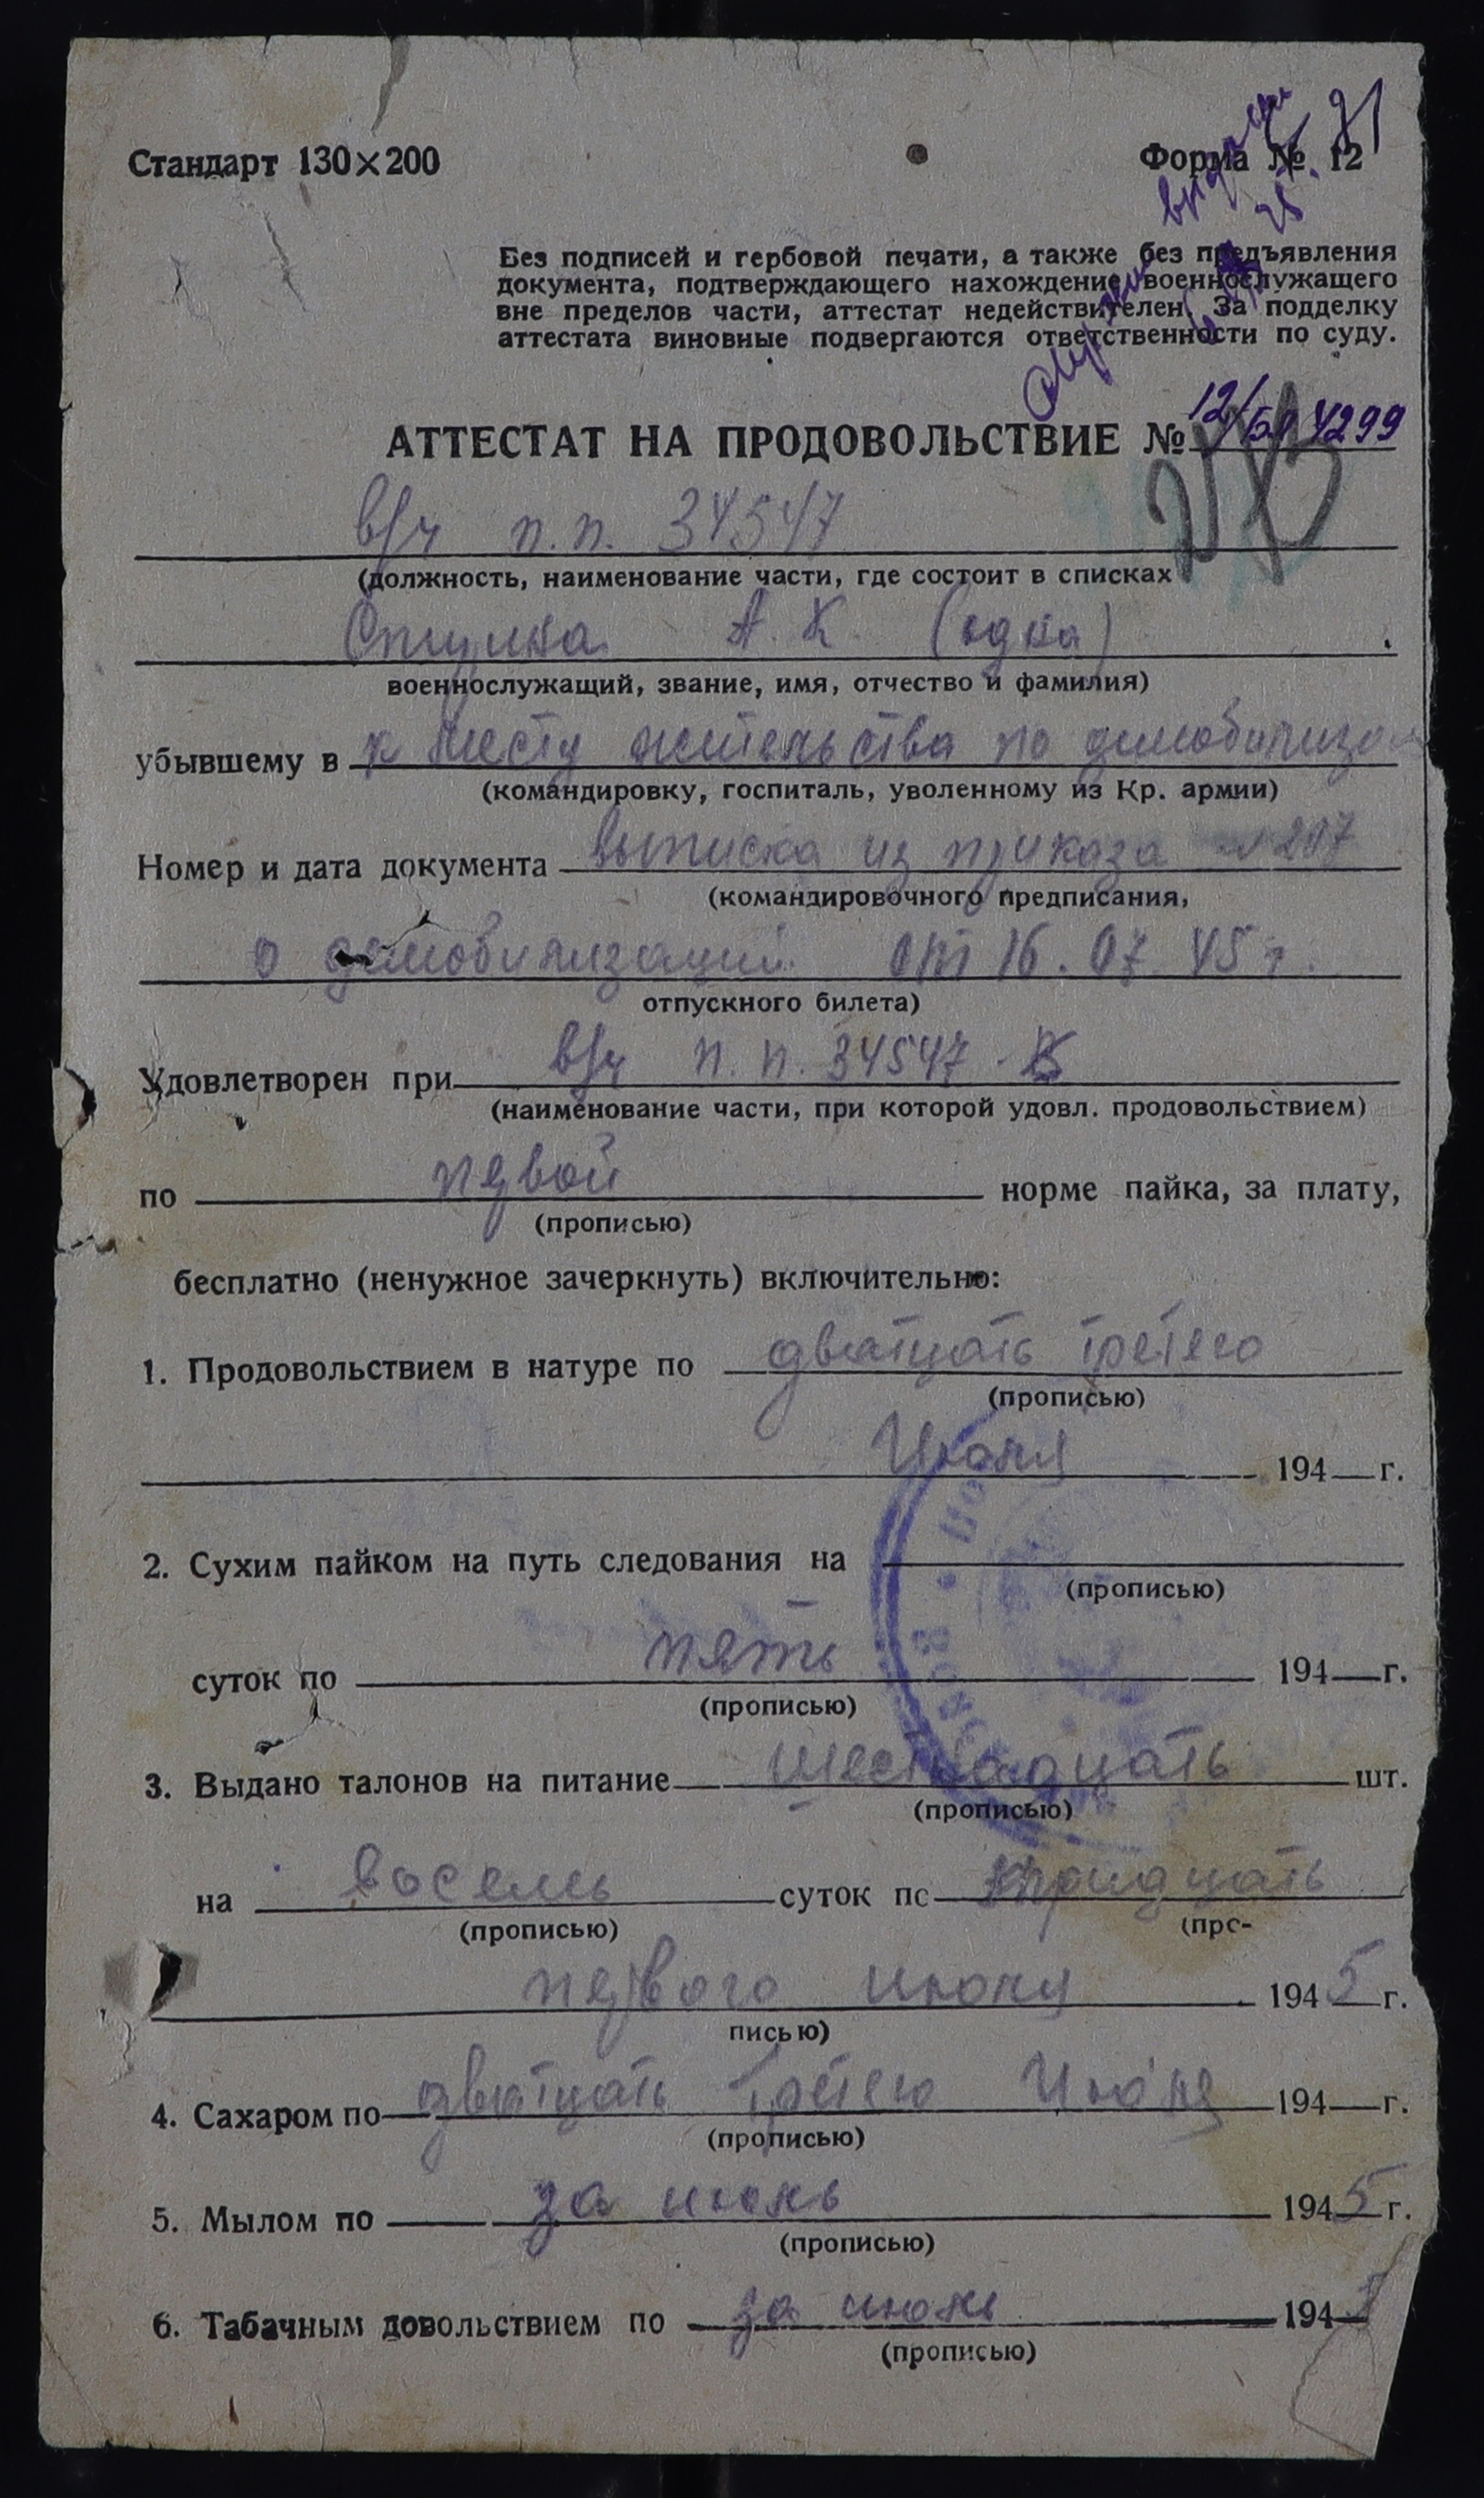 Стандарт 130×200
Форма № 12
Без подписей и гербовой печати, а также без предъявления
документа, подтверждающего нахождение военнослужащего
вне пределов части, аттестат недействителен. За подделку
аттестата виновные подвергаются ответственности по суду.
АТТЕСТАТ НА ПРОДОВОЛЬСТВИЕ № 4299
в/ч п.п. 34547
(должность, наименование части, где состоит в списках
А. К (одна)
военнослужащий, звание, имя, отчество и фамилия)
убывшему в к месту жительства по демобилиза
(командировку, госпиталь, уволенному из Кр. армии)
Номер и дата документа выписка из приказа
(командировочного предписания,
о демобилизации от 16.07.45 г.
отпускного билета)
Удовлетворен при в/ч п.п. 34547
(наименование части, при которой удовл. продовольствием)
по первой норме пайка, за плату,
(прописью)
бесплатно (ненужное зачеркнуть) включительно:
1. Продовольствием в натуре по дватцать третего
(прописью)
194 г.
2. Сухим пайком на путь следования на
(прописью)
суток по пять 194 г.
(прописью)
3. Выдано талонов на питание шестнадцать шт.
(прописью)
на восемь суток по тридцать
(прописью) (про-
первого 1945 г.
писью)
4. Сахаром по дватцать третего 194 г.
(прописью)
5. Мылом по за июль 1945 г.
(прописью)
6. Табачным довольствием по за июль 1945
(прописью)